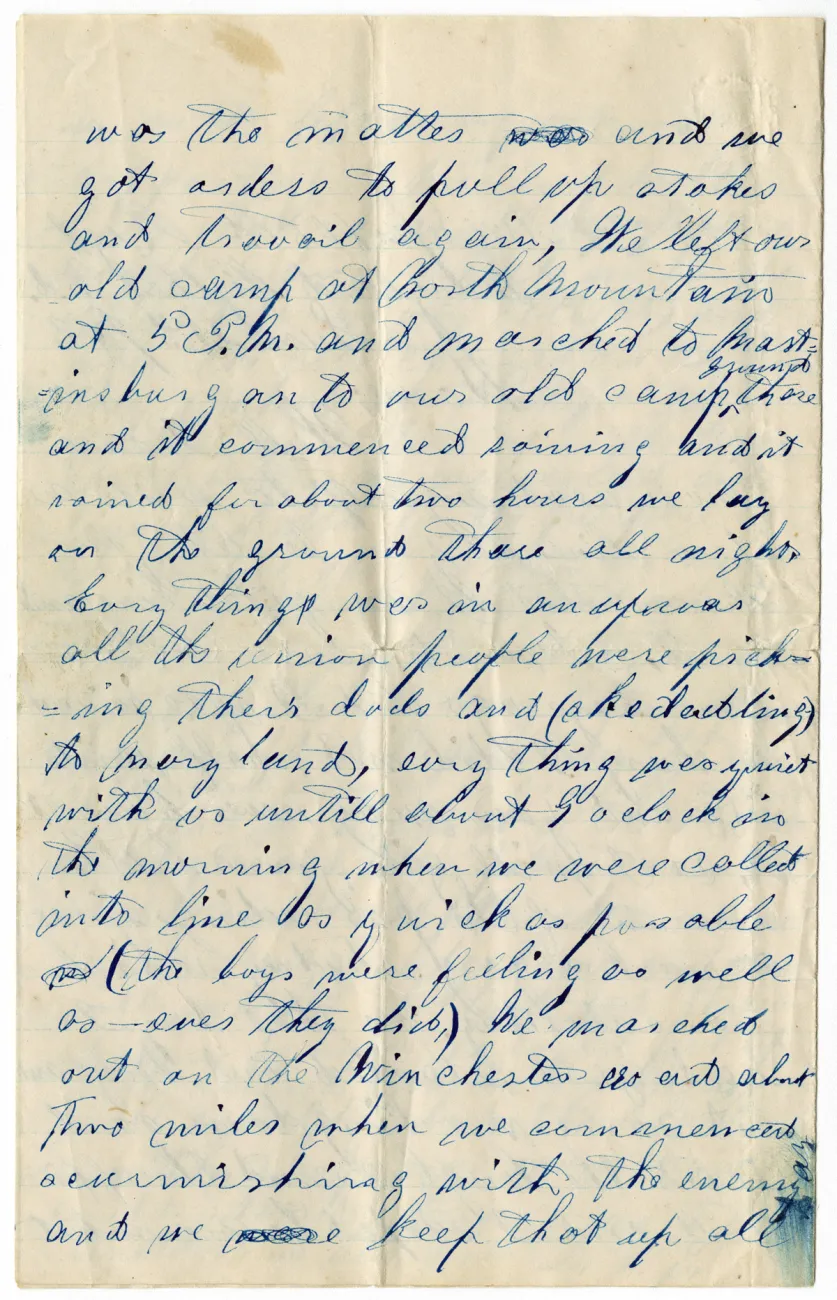 was the matter was and we
got orders to pull up stakes
and travail again, We left our
old camp at North Mountain
at 5 P.M. and marched to Mart=
ground
=insburg an to our old camp thare
and it commenced raining and it
rained for about two hours we lay
on the ground thare all night.
Evry things was in an uproar
all the union people were pick=
=ing their duds and (skedadling)
to mary land, evry thing was quiet
with us untill about 9 oclock in
the morning when we were collect
into line as quick as posable
(the boys were feeling as well
as - ever they did,) We marched
out on the Winchester road about
two miles when we commenced
scurmishing with the enemy
and we were keep that up all